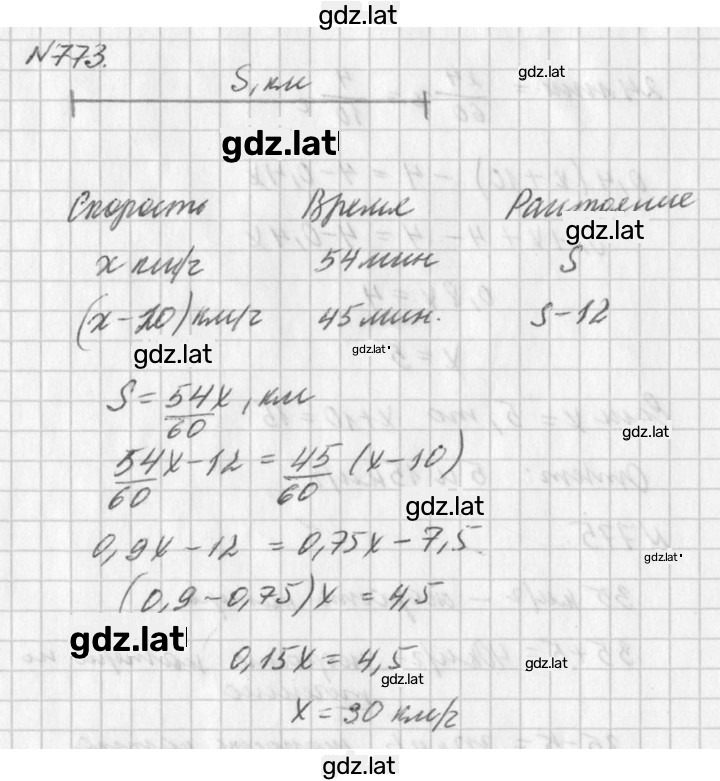 gdz.lat
N773.
gdz.lat
S, км
gdz.lat
Скорость Время Расстояние
gdz.lat
x км/г 54 мин S
(x-10) км/г 45 мин. S-12
gdz.lat gdz.lat
S = 54/60 x, км
gdz.lat
54/60 x - 12 = 45/60 (x-10)
gdz.lat
0,9x - 12 = 0,75x - 7,5
gdz.lat
(0,9-0,75)x = 4,5
gdz.lat
0,15x = 4,5
gdz.lat
gdz.lat
x = 30 км/г
gdz.lat